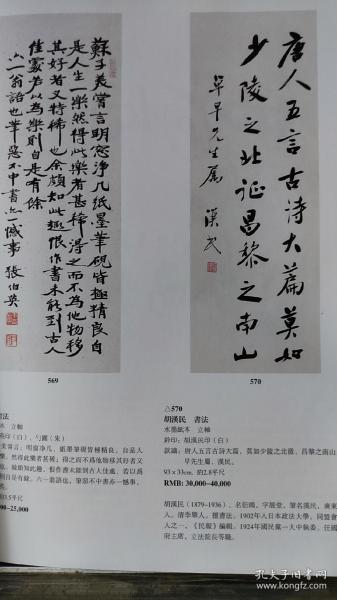 蘇子美嘗言明窓淨几紙墨筆硯皆極精良自
是人生一樂然得此樂者甚稀得之而不為他物移
其好者又特稀也余頗知此趣恨作書未能到古人
佳處若以為樂則自是有餘
六一翁語也筆惡不中書亦一憾事 張伯英
唐人五言古詩大篇莫如
少陵之北证昌黎之南山
早早先生属 漢民
569
570
書法
本 立軸
伯英印(白)、勺圃(朱)
子美嘗言:明窗凈几,紙墨筆硯皆極精良,自是人生
樂,然得此樂者甚稀;得之而不爲他物移其好者又
也。餘頗知此趣,恨作書未能到古人佳處,若以爲
則自是有餘。六一翁語也,筆惡不中書亦一憾事。
英。
3.5平尺
000-25,000
△570
胡漢民 書法
水墨紙本 立軸
鈐印:胡漢民印(白)
款識:唐人五言古詩大篇,莫如少陵之北徵、昌黎之南山
早先生屬,漢民。
93×33cm. 約2.8平尺
RMB: 30,000-40,000
胡漢民(1879-1936),名衍鴻,字展堂,筆名漢民,廣東
人。清季舉人。擅書法。1902年入日本政法大學,同盟會
人之一,《民報》編輯。1924年國民黨一大中執委,任國
府主席,立法院長等職。
孔夫子旧书网